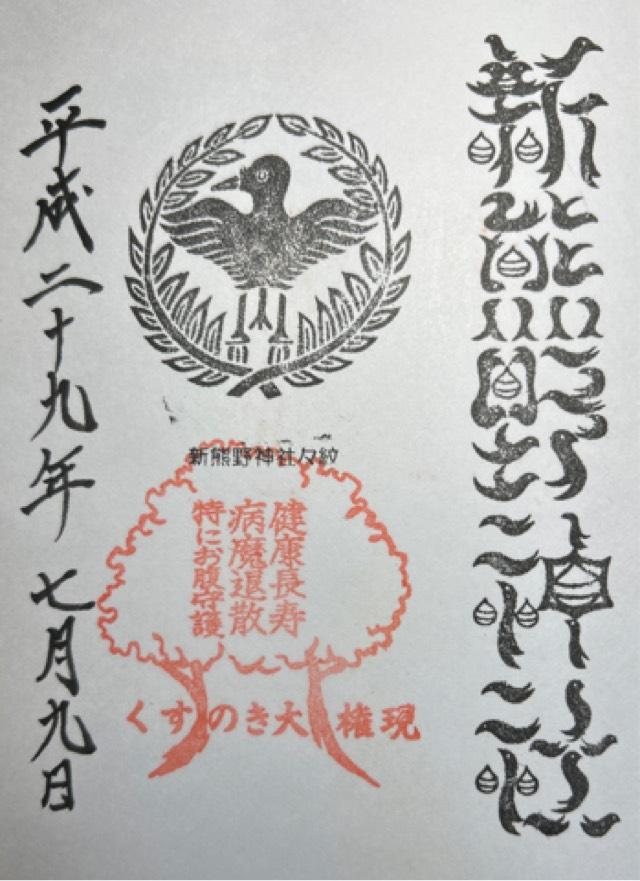 新熊野神社
新熊野神社夕紋
健康長寿
病魔退散
特にお腹守護
くすのき大権現
平成二十九年七月九日